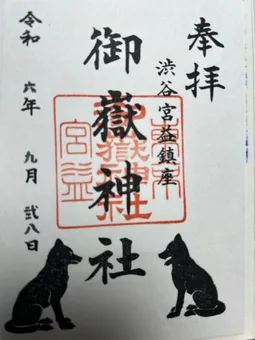 奉拝
渋谷宮益鎮座
御嶽神社
令和六年九月弐八日
東京
御嶽神社
宮益